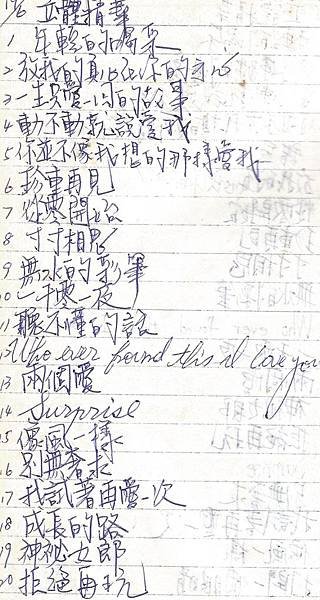 立體精華
1 年輕的喝采
2 放我的真心在你的手心
3 一生只愛的故事
4 動不動就說愛我
5 你並不像我想的那樣愛我
6 珍重再見
7 從零開始
8 寸寸相思
9 無水的彩筆
10 一千零一夜
11 聽不懂的話
12 Who ever found this il love you
13 兩個愛
14 Surprise
15 像風一樣
16 別無奢求
17 我試著再愛一次
18 成長的路
19 神祕女郎
20 拒絕再玩